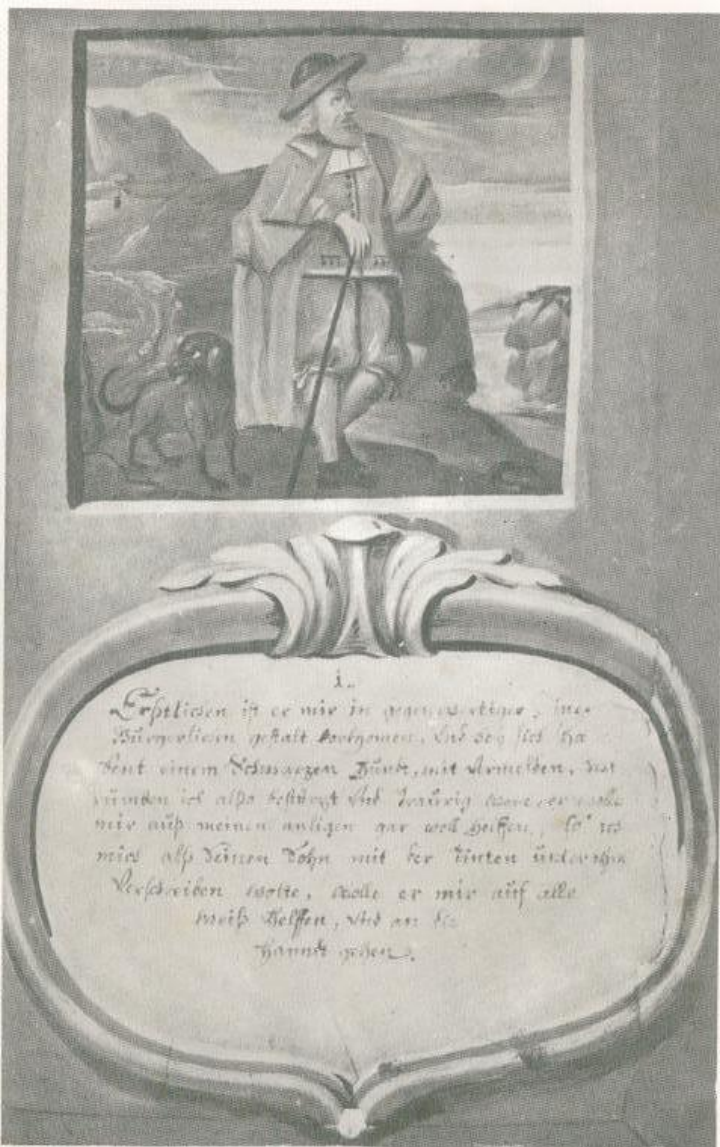 1.
Erstlichen ist er mir in gegenwertiger, iner
Bürgerlichen gestalt vorkhomen, Vnd bey sich ha
bent einem Schwarzen Hundt, mit Vermelden, war
rumben ich alßo bestürtzt Vnd Traurig were, er wolle
mir auß meinen anligen gar woll helffen, so ich
mich alß Seinen Sohn mit der dinten under ihm
Verschreiben wolte, wolle er mir auf alle
weiß helffen, Vnd an die
Handt gehen.